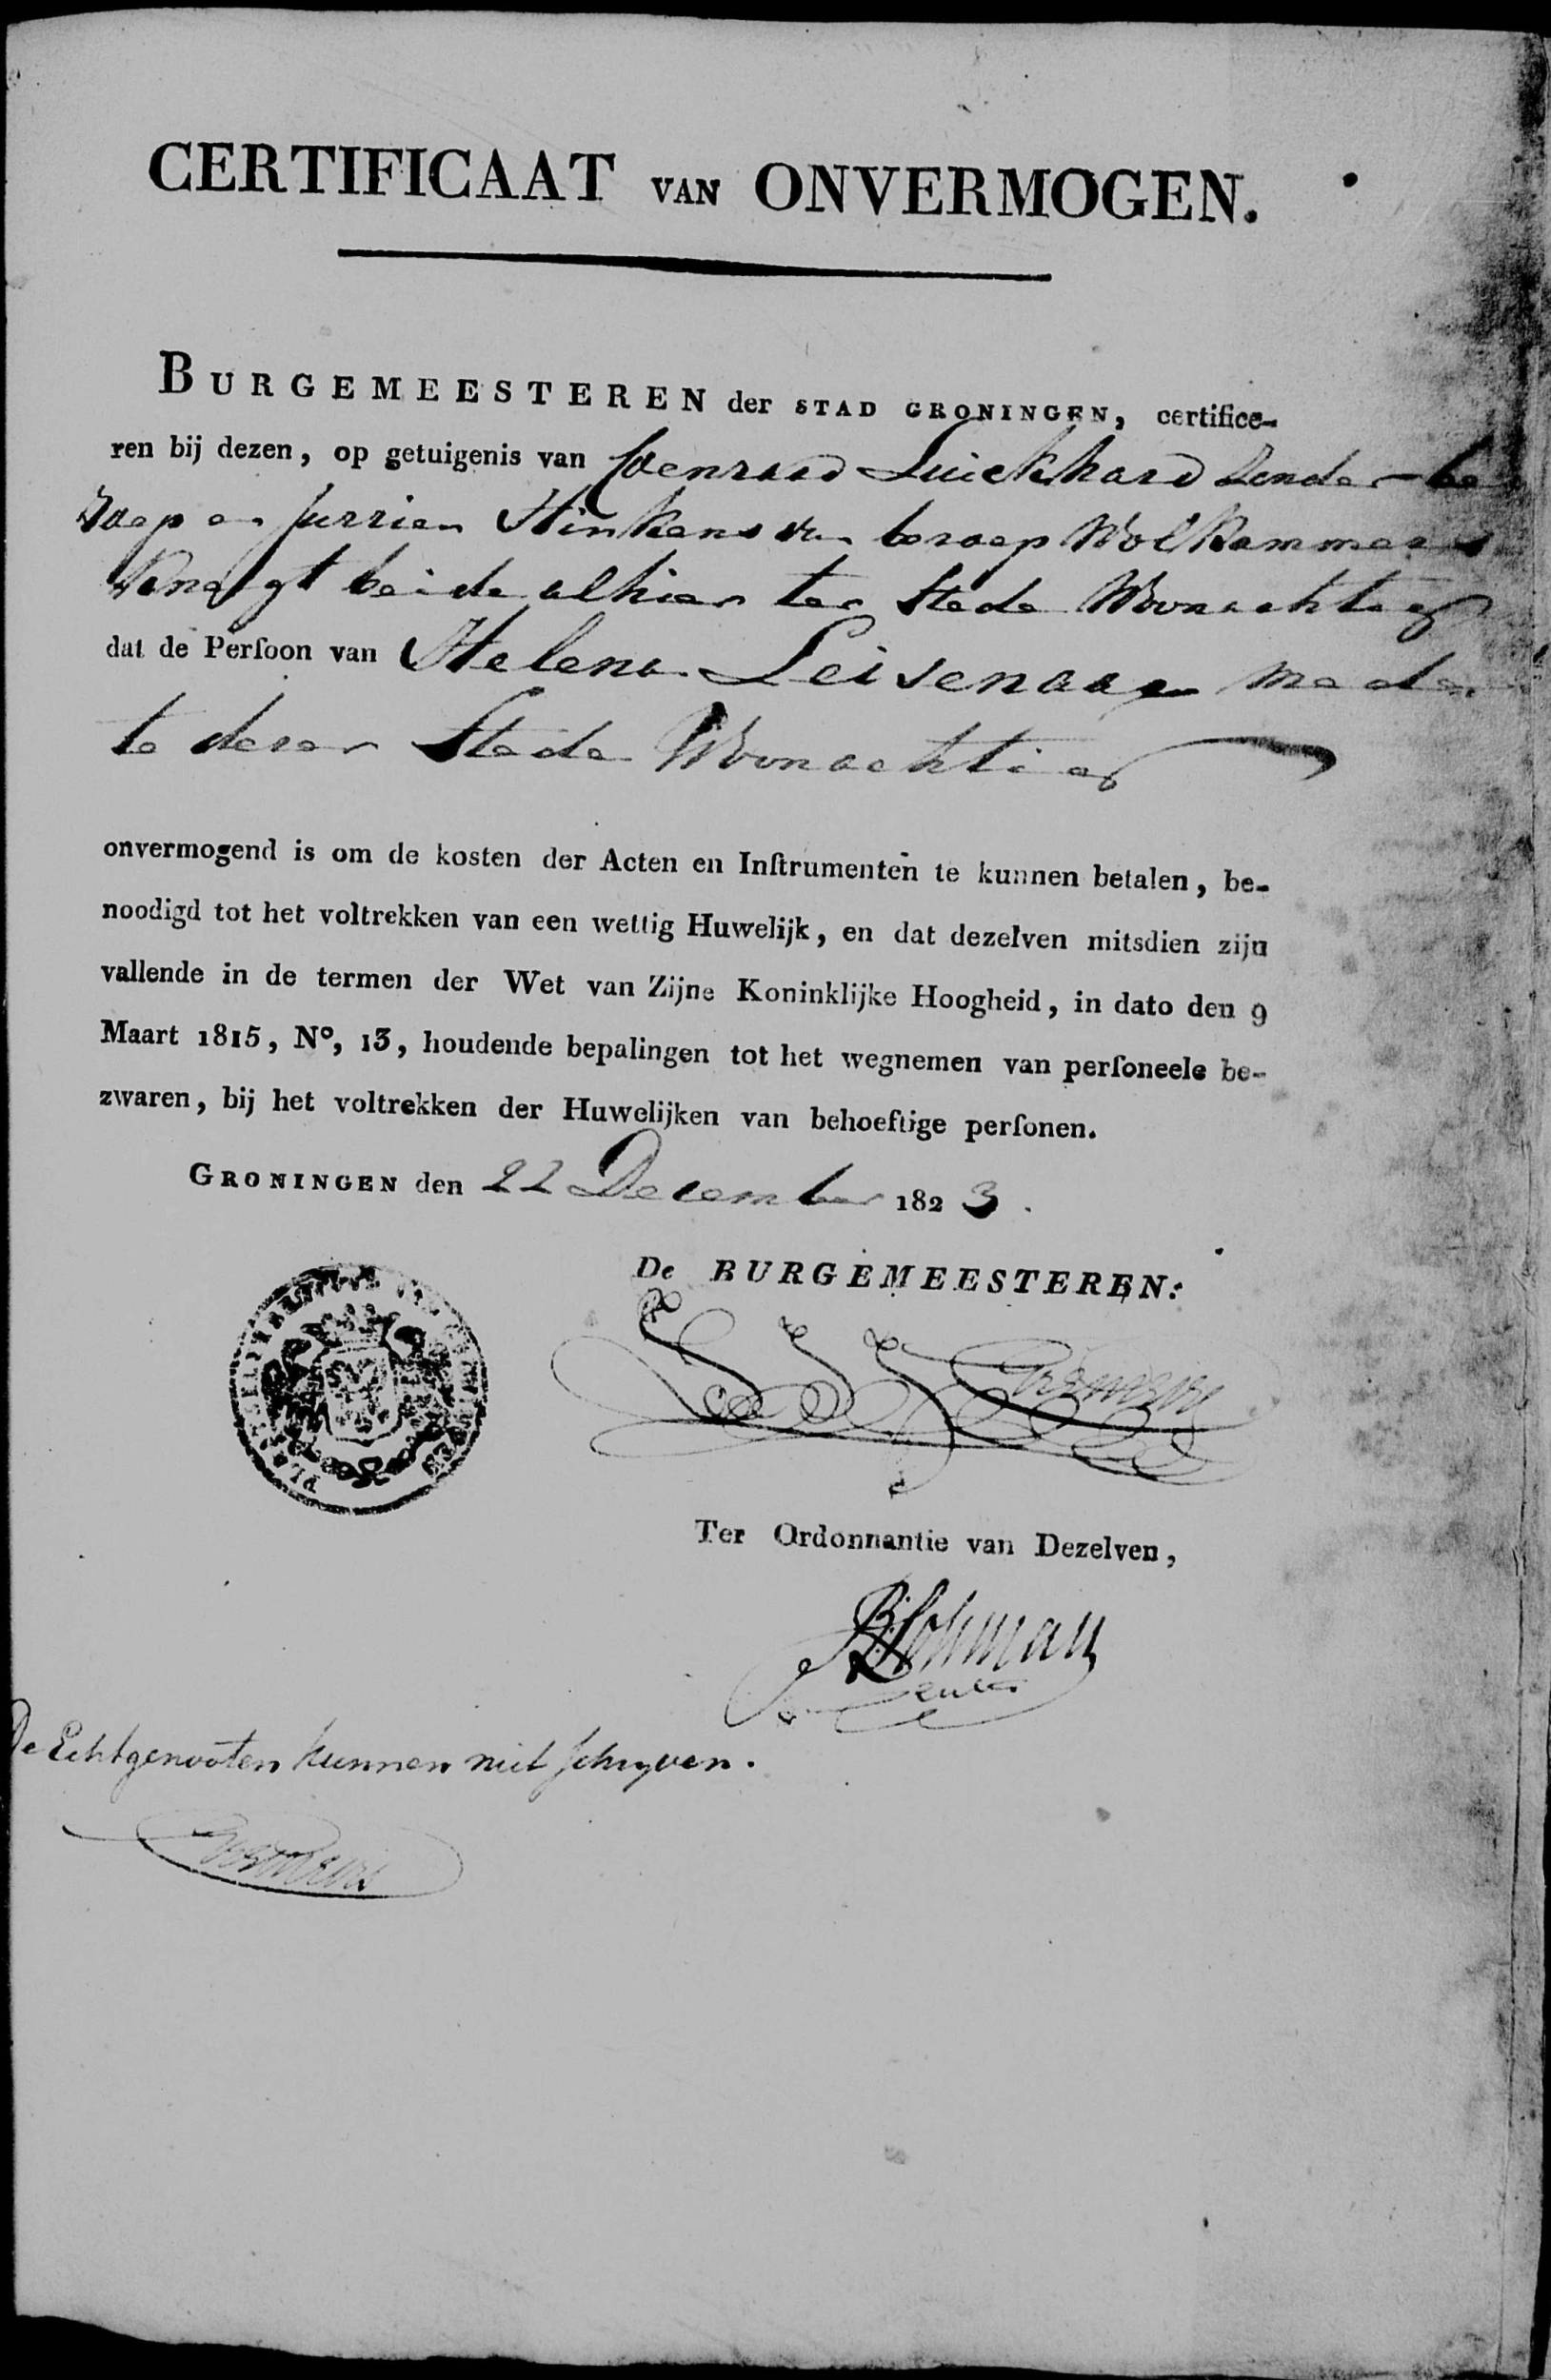 CERTIFICAAT VAN ONVERMOGEN.
BURGEMEESTEREN der STAD GRONINGEN, certifice-
ren bij dezen, op getuigenis van Coenraad Luickhard Zonder be
roep en Jurrien Hinkens van beroep Wolkammers
Knegt beide alhier ter Stede Woonachtig
dat de Perſoon van Helena Leisenaar mede
te deser Stede Woonachtig
onvermogend is om de kosten der Acten en Inſtrumenten te kunnen betalen, be-
noodigd tot het voltrekken van een wettig Huwelijk, en dat dezelven mitsdien zijn
vallende in de termen der Wet van Zijne Koninklijke Hoogheid, in dato den 9
Maart 1815, Nº, 13, houdende bepalingen tot het wegnemen van perſoneele be-
zwaren, bij het voltrekken der Huwelijken van behoeftige perſonen.
GRONINGEN den 22 December 1823.
De BURGEMEESTEREN:
Ter Ordonnantie van Dezelven,
Lohman
De Echtgenooten kunnen niet schryven.